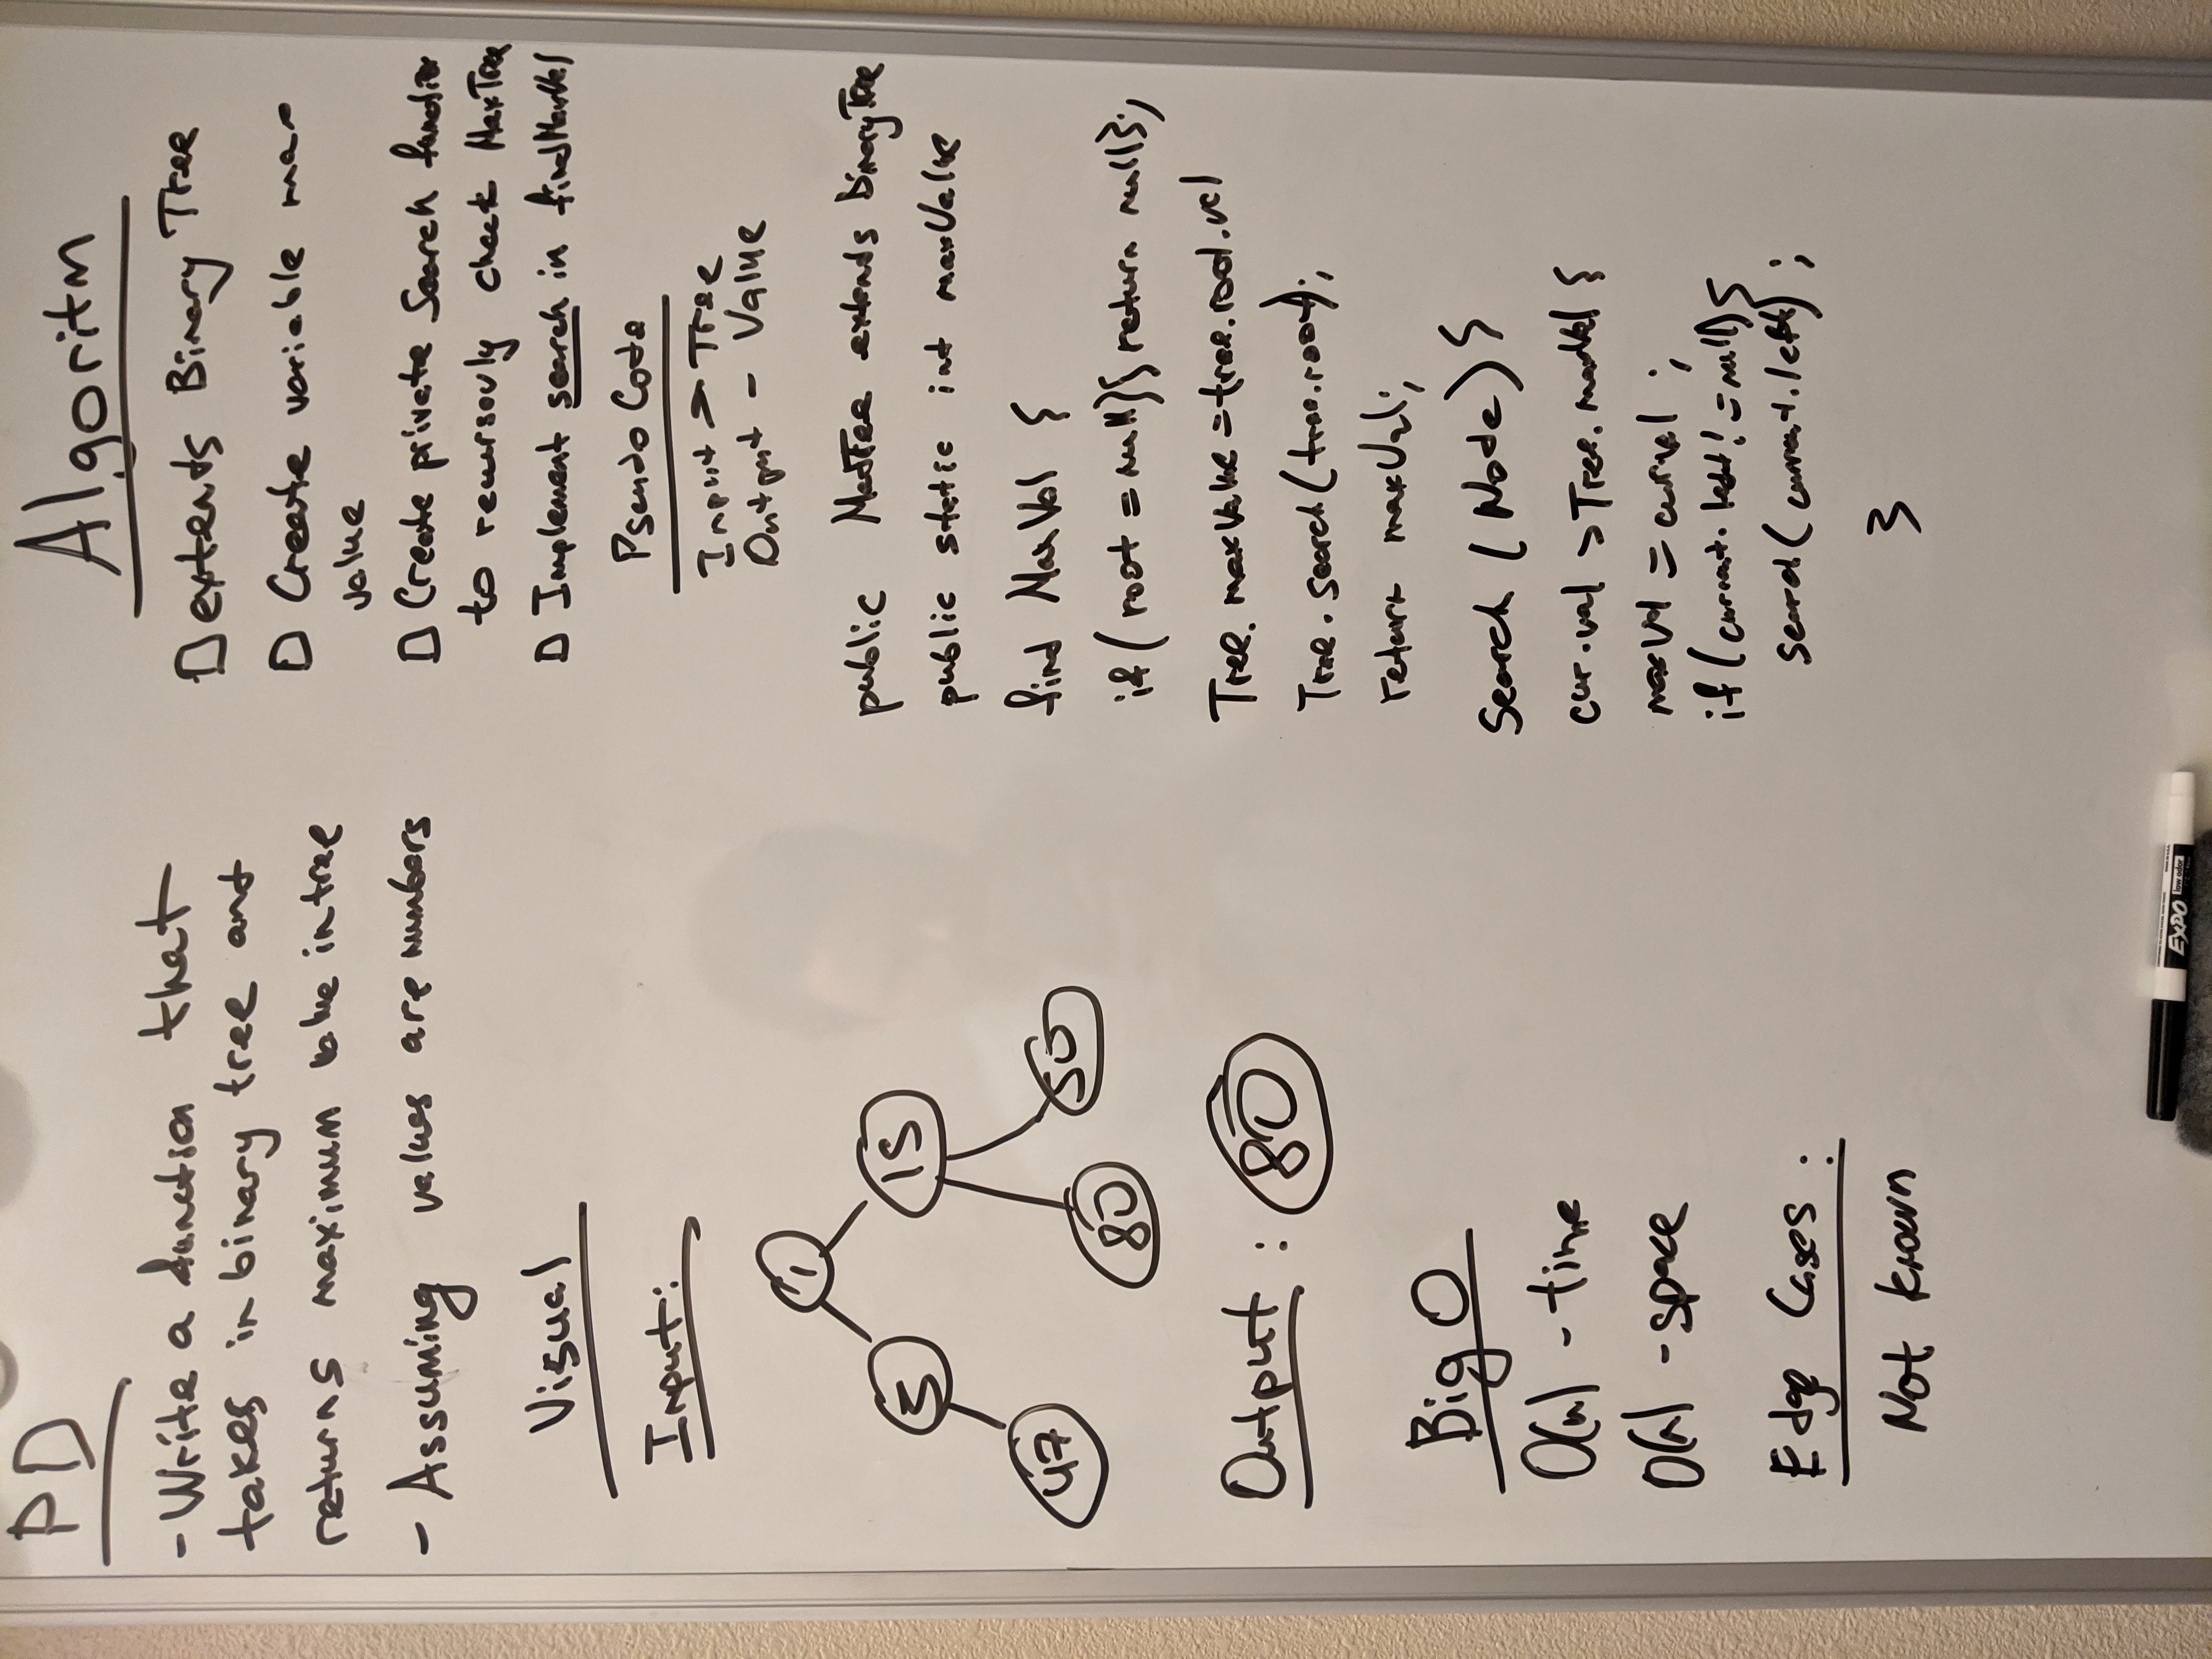 PD
- Write a function that
takes in binary tree and
returns maximum value in tree
- Assuming values are numbers
Visual
Input:
1
5 15
47 80 50
Output : 80
Big O
O(n) - time
O(n) - space
Edge Cases :
Not known
Algoritm
extends Binary Tree
Create variable max
value
Create private Search function
to recursovly check MaxTree
Implement search in findMaxVal
Pseudo Code
Input > Tree
Output - Value
public MaxTree extends BinaryTree
public static int maxValue
find MaxVal {
if ( root = null){ return null};
Tree. maxValue = tree.root.val
Tree. search (tree.root);
return maxVal;
Search ( Node) {
cur.val > Tree. maxVal {
maxVal = cur.val ;
if (current. left != null) {
search( current.left) ;
}
EXPO low odor